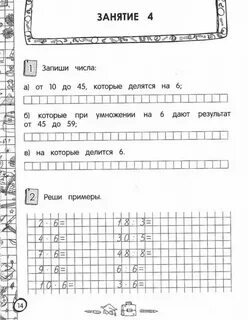 ЗАНЯТИЕ 4
1 Запиши числа:
а) от 10 до 45, которые делятся на 6;
б) которые при умножении на 6 дают результат
от 45 до 59;
в) на которые делится 6.
2 Реши примеры.
2·6= 18:3=
4·6= 30:5=
7·6= 48:6=
9·6=
10·6= 3·6=
14